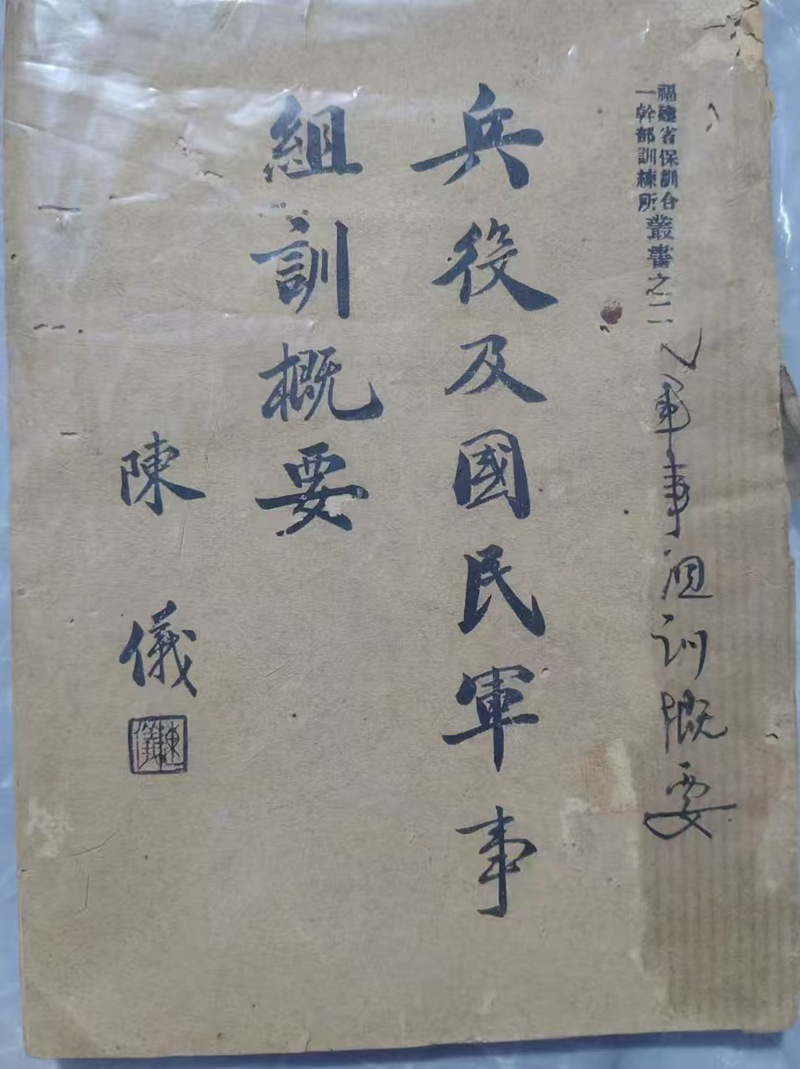 福建省保訓合
一幹部訓練所
叢書之二
軍事组训概要
兵役及國民軍事
組訓概要
陳儀
陳儀